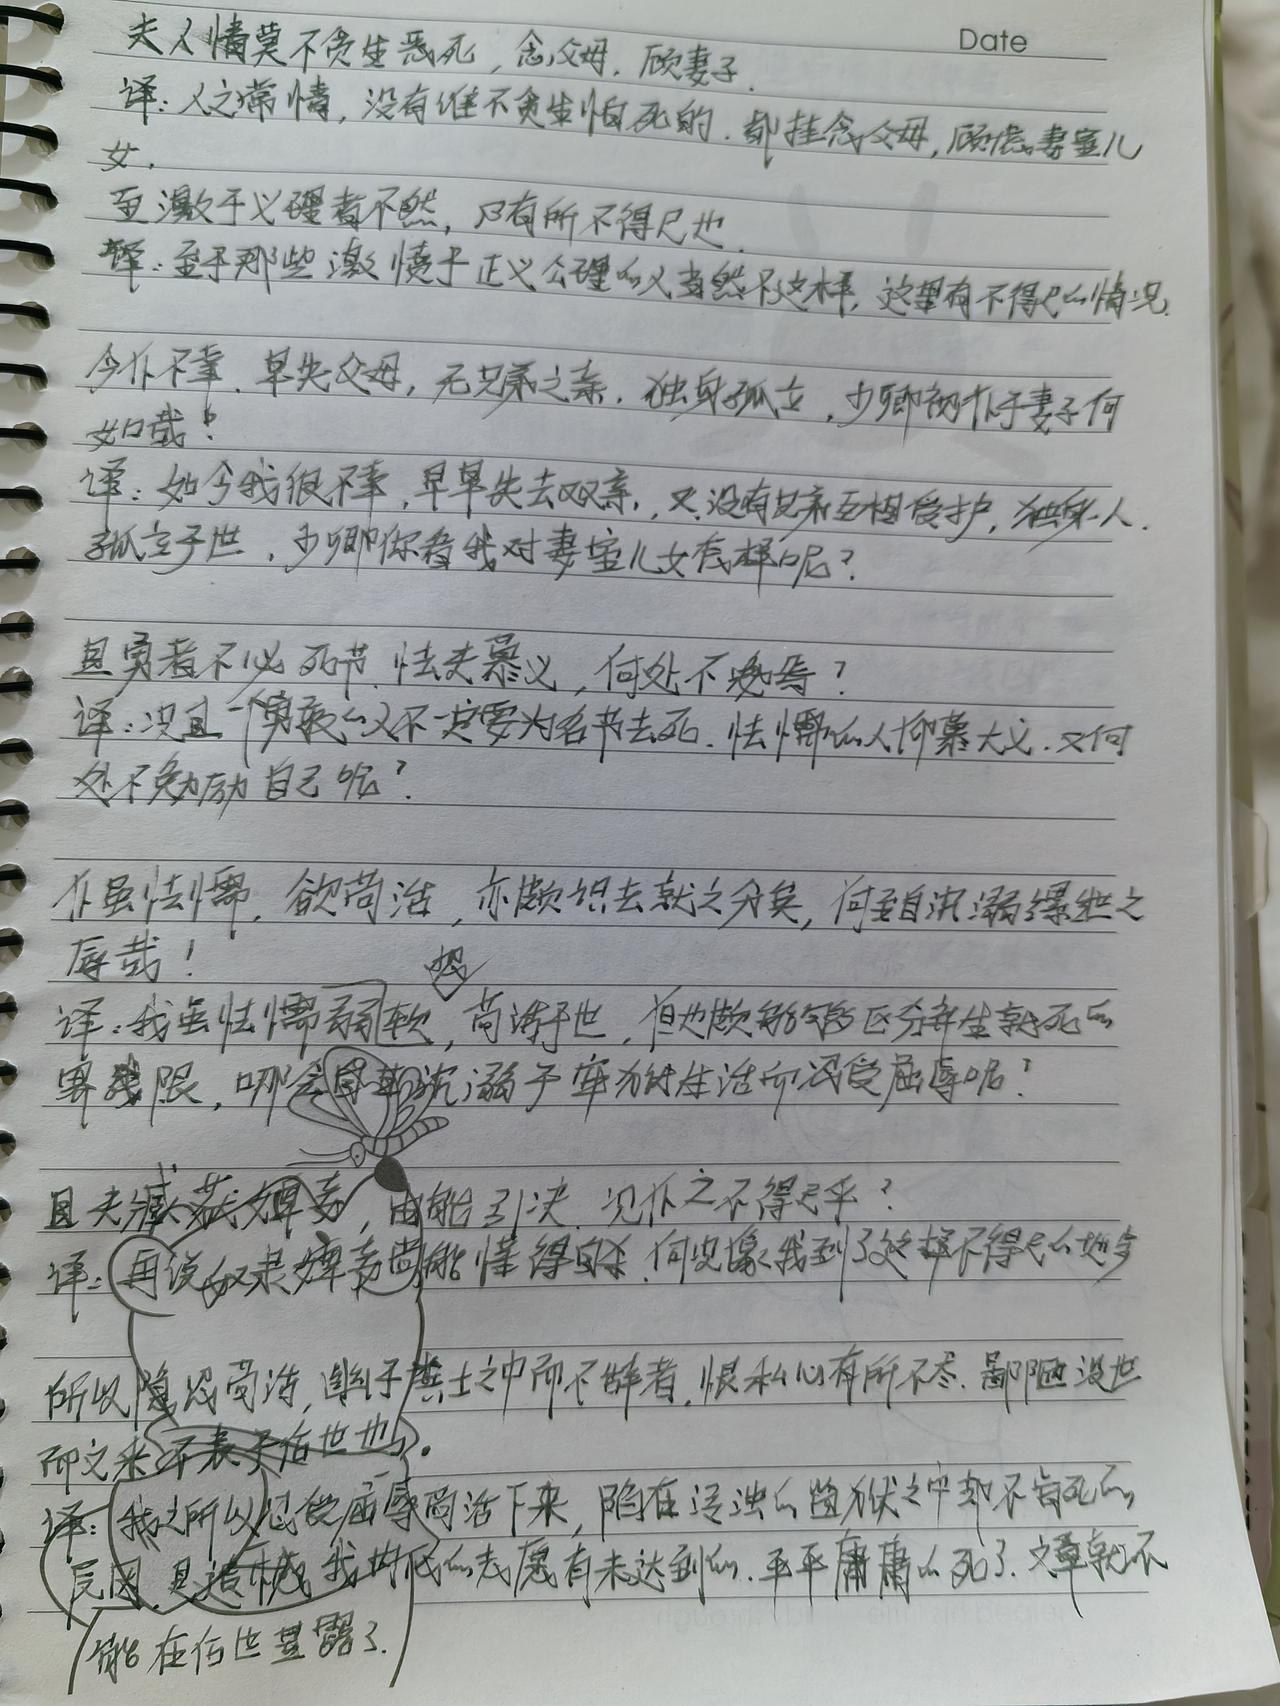 Date
夫人情莫不贪生恶死，念父母，顾妻子.
译：人之常情，没有谁不贪生怕死的.都挂念父母，顾虑妻室儿
女.
至激于义理者不然，乃有所不得已也.
译：至于那些激愤于正义公理的人当然不这样，这里有不得已的情况.
今仆不幸.早失父母，无兄弟之亲.独身孤立，少卿视仆于妻子何
如哉！
译：如今我很不幸，早早失去双亲，又没有兄弟互相爱护，独身一人.
孤立于世，少卿你看我对妻室儿女怎样呢？
且勇者不必死节.怯夫慕义，何处不勉焉？
译：况且一个勇敢的人不一定要为名节去死.怯懦的人仰慕大义.又何
处不勉励自己呢？
仆虽怯懦，欲苟活，亦颇识去就之分矣，何至自沉溺缧绁之
辱哉！
想
译：我虽怯懦弱软，苟活于世，但也颇能够区分弃生就死的
界限，哪会自甘沉溺于牢狱生活而忍受屈辱呢？
且夫臧获婢妾，由能引决.况仆之不得已乎？
译：再说奴隶婢妾尚能懂得自杀.何况像我到了这样不得已的地步
所以隐忍苟活，幽于粪土之中而不辞者，恨私心有所不尽.鄙陋没世
而文采不表于后世也.
译：我之所以忍受屈辱苟活下来，陷在污浊的监狱之中却不肯死的
原因，是遗憾我内心的志愿有未达到的.平平庸庸的死了.文章就不
能在后世显露了.